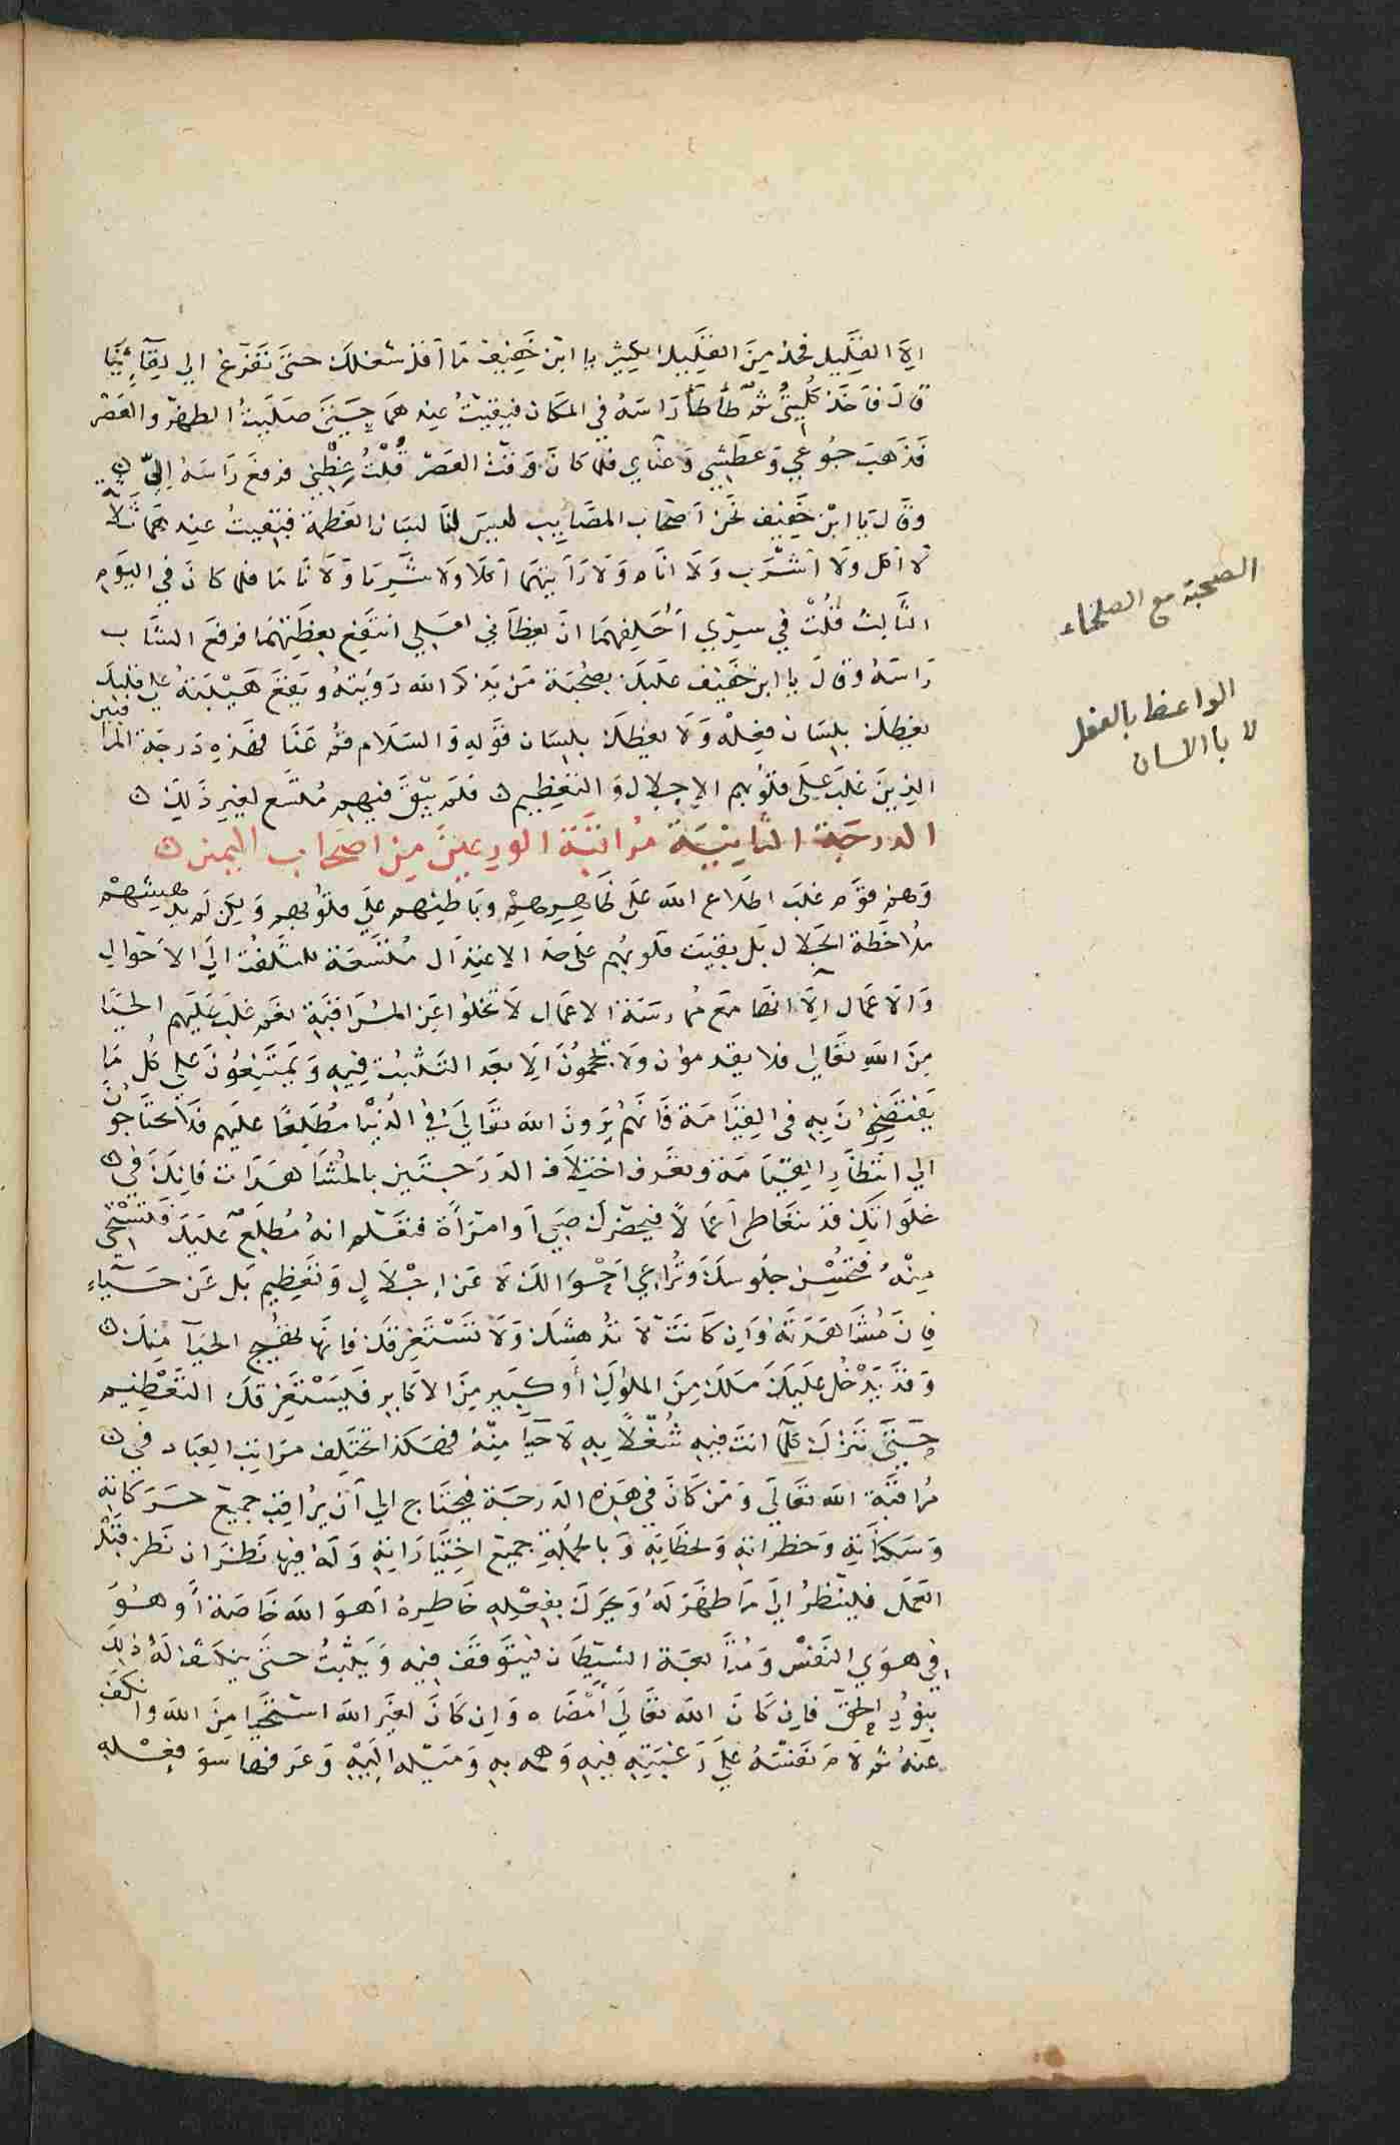 الا القليل فخذ من القليل الكثير يا ابن خفيف ما اقل شغلك حتى تفرغ الي لقائنا
قال فاخذ كليتي ثم طأطأ راسه في المكان فبقيت عندهما حتى صلينا الظهر والعصر
فذهب جوعي وعطشي وعناي فلما كان وقت العصر قلت عظني فرفع راسه اليّ
وقال يا ابن خفيف نحن اصحاب المصايب ليس لنا لسان العظة فبقيت عندهما ثلاثة
لا آكل ولا اشرب ولا انام ولا رأيتهما اكلا ولا شربا ولا ناما فلما كان في اليوم
الثالث قلت في سري احلفهما ان يعظاني لعلي انتفع بعظتهما فرفع الشاب
راسه وقال يا ابن خفيف عليك بصحبة من يذكرك الله رؤيته ويقع هيبته علي قلبك
يعظك بلسان فعله ولا يعظك بلسان قوله والسلام قم عنا فهذه درجة المراقبين
الذين غلب على قلوبهم الاجلال والتعظيم فلم يبق فيهم متسع لغير ذلك
الدرجة الثانية مراقبة الورعين من اصحاب اليمين
وهم قوم غلب اطلاع الله على ظاهرهم وباطنهم علي قلوبهم ولكن لم يدهشهم
ملاحظة الجلال بل بقيت قلوبهم على حد الاعتدال متسعة للتلفت الي الاحوال
والاعمال الا انها مع ممارسة الاعمال لا تخلوا عن المراقبة نعم غلب عليهم الحيا
من الله تعالي فلا يقدمون ولا يحجمون الا بعد التثبت فيه ويمتنعون علي كل ما
يفتضحون به في القيامة فانهم يرون الله تعالي في الدنيا مطلعا عليهم فلا يحتاجون
الي انتظار القيامة وتعرف اختلاف الدرجتين بالمشاهدات فانك في
خلواتك قد تتعاطى اعمالا فيحضرك صبي او امرأة فتعلم انه مطلع عليك فتستحي
منه فتحسن جلوسك وتراعي احوالك لا عن اجلال وتعظيم بل عن حياء
فان مشاهدته وان كانت لا تدهشك ولا تستغرقك فانها تهيج الحيا منك
وقد يدخل عليك ملك من الملوك أو كبير من الاكابر فيستغرقك التعظيم
حتى تترك كلما انت فيه شغلا به لا حيا منه فهكذا تختلف مراتب العباد في
مراقبة الله تعالي ومن كان في هذه الدرجة فيحتاج الي ان يراقب جميع حركاته
وسكناته وخطراته ولحظاته وبالجملة جميع اختياراته وله فيها نظران نظر قبل
العمل فلينظر الى ما ظهر له وتحرك بفعله خاطره اهو الله خاصة أو هو
في هوي النفس ومتابعة الشيطان فيتوقف فيه ويثبت حتى ينكشف له ذلك
بنور الحق فان كان الله تعالي أمضاه وان كان لغير الله استحيا من الله وانكف
عنه ثم لام نفسه علي رغبته فيه وهمه به وميله اليه وعرفها سوء فعله
الصحبة مع الصلحاء
الواعظ بالفعل
لا باالسان